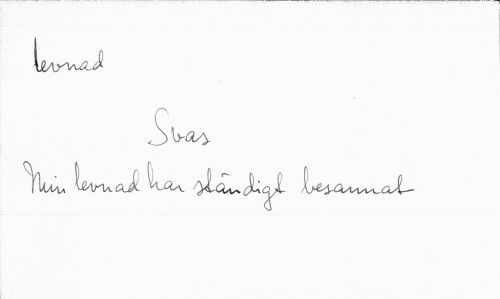 levnad
Svas
Min levnad har ständigt besannat